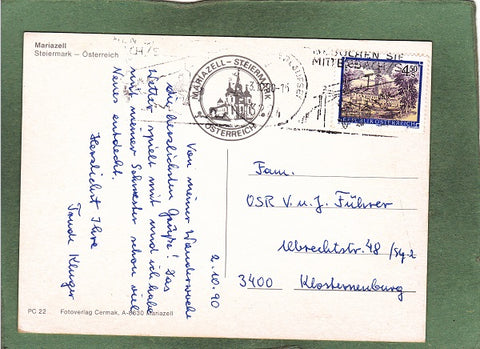 Mariazell
Steiermark – Österreich
MARIAZELL - STEIERMARK
ÖSTERREICH
BESUCHEN SIE
MITTERBACH/S
S 4.50
REPUBLIK ÖSTERREICH
2.10.90
Von meiner Wanderwoche
die herzlichsten Grüße! Das
Wetter spielt mit und ich habe
mit meiner Schwester schon viel
Neues entdeckt.
Herzlichst Ihre
Traude Kluger
Fam.
OSR V. u. J. Führer
Albrechtstr. 48
3400 Klosterneuburg
PC 22 Fotoverlag Cermak, A-8630 Mariazell